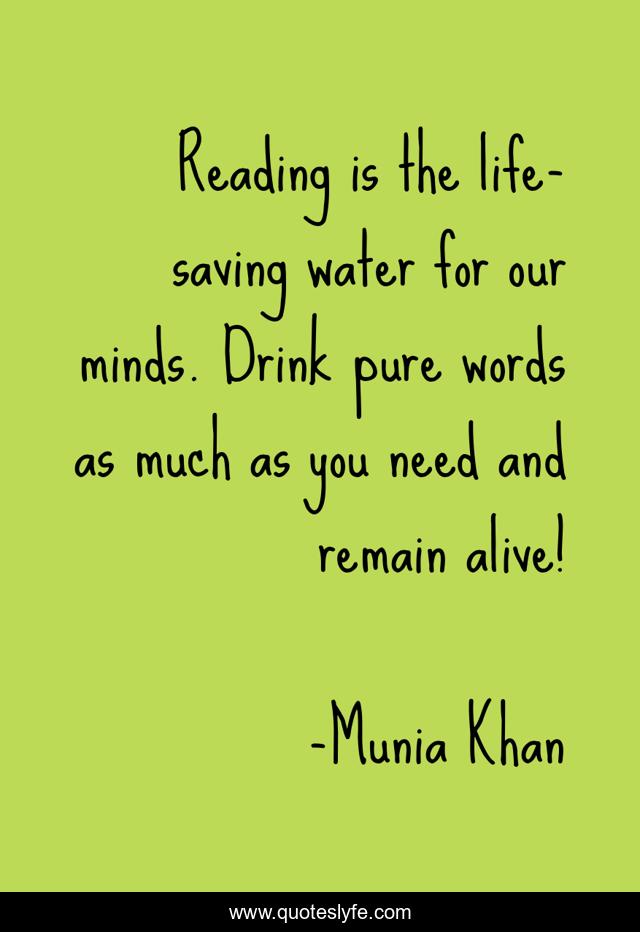 Reading is the life-
saving water for our
minds. Drink pure words
as much as you need and
remain alive!
-Munia Khan
www.quoteslyfe.com